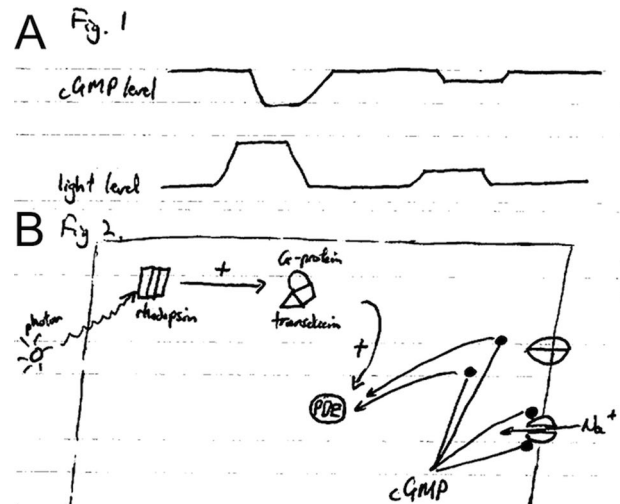 A Fig. 1
cGMP level
light level
B Fig 2.
photon
rhodopsin
+
G-protein
transducin
+
PDE
Na+
cGMP